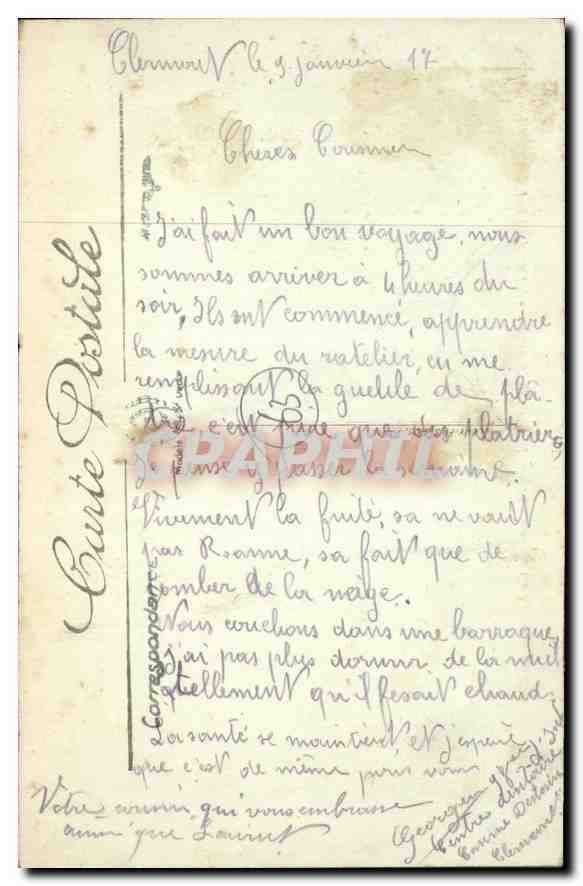 Clermont le 9 janvier 17
Chères Cousines
J'ai fait un bon voyage, nous
sommes arriver à 4 heures du
soir, Ils ont commencé, apprendre
la mesure du ratelier, en me
remplissant la gueule de plâ-
tre c'est pire que des platriers,
Je pense y passer la semaine.
Vivement la fuite, sa ne vaut
pas Roanne, sa fait que de
tomber de la neige.
Nous couchons dans une barraque
J'ai pas plus dormir de la nuit
tellement qu'il fesait chaud.
La santé se maintient et j'espère
que c'est de même pour vous
Votre cousin qui vous embrasse
ainsi que Laurent
Georges
Centre dentaire
Clermont
Carte Postale
Correspondance
CPAPHIL
63